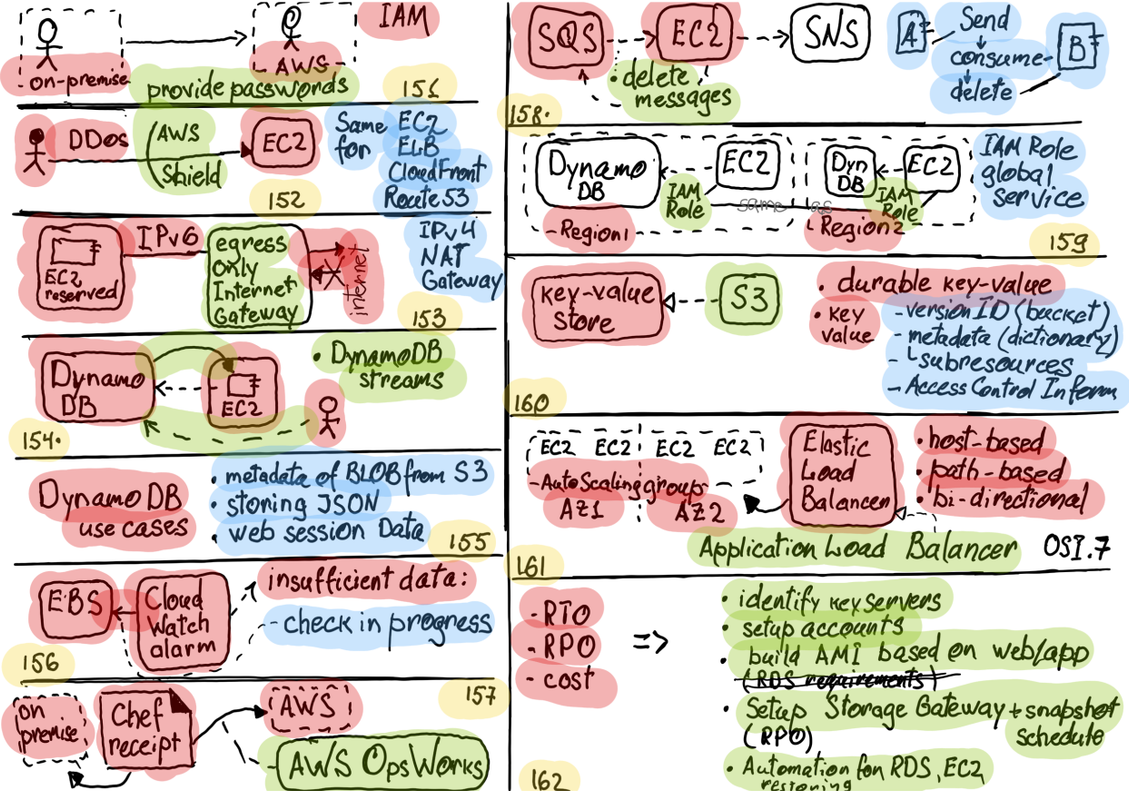 IAM
on-premise
AWS
provide passwords
156
DDos
(AWS
Shield
EC2
Same for
EC2
ELB
CloudFront
Route53
152
EC2
reserved
IPv6
egress
Only
Internet
Gateway
internet
IPv4
NAT
Gateway
153
Dynamo
DB
EC2
• DynamoDB
streams
154.
DynamoDB
use cases
• metadata of BLOB from S3
• storing JSON
• web session Data
155
EBS
Cloud
Watch
alarm
insufficient data:
- check in progress
156
on
premise
Chef
receipt
AWS
AWS OpsWorks
157
SQS
EC2
SNS
• delete
messages
A
Send
consume
delete
B
158.
Dynamo
DB
EC2
IAM
Role
Region1
same as
Dyn
DB
EC2
IAM
Role
Region2
IAM Role
global
service
159
key-value
Store
S3
• durable key-value
• key
value
- version ID (bucket)
- metadata (dictionary)
- subresources
- Access Control Inform
160
EC2 EC2 EC2 EC2
AutoScaling group
AZ1 AZ2
Elastic
Load
Balancer
• host-based
• path-based
• bi-directional
Application Load Balancer OSI.7
161
- RTO
- RPO
- cost
=>
• identify key servers
• setup accounts
• build AMI based on web/app
(RDS requirements)
• Setup Storage Gateway + snapshot
schedule
(RPO)
• Automation for RDS, EC2
restoring
162